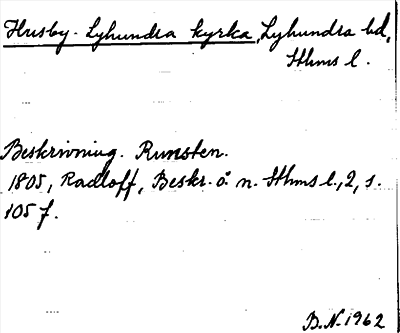 Husby-Lyhundra kyrka, Lyhundra hd,
Sthms l.
Beskrivning. Runsten.
1805, Radloff, Beskr. ö. n. Sthms l., 2, s.
105 f.
B.N. 1962